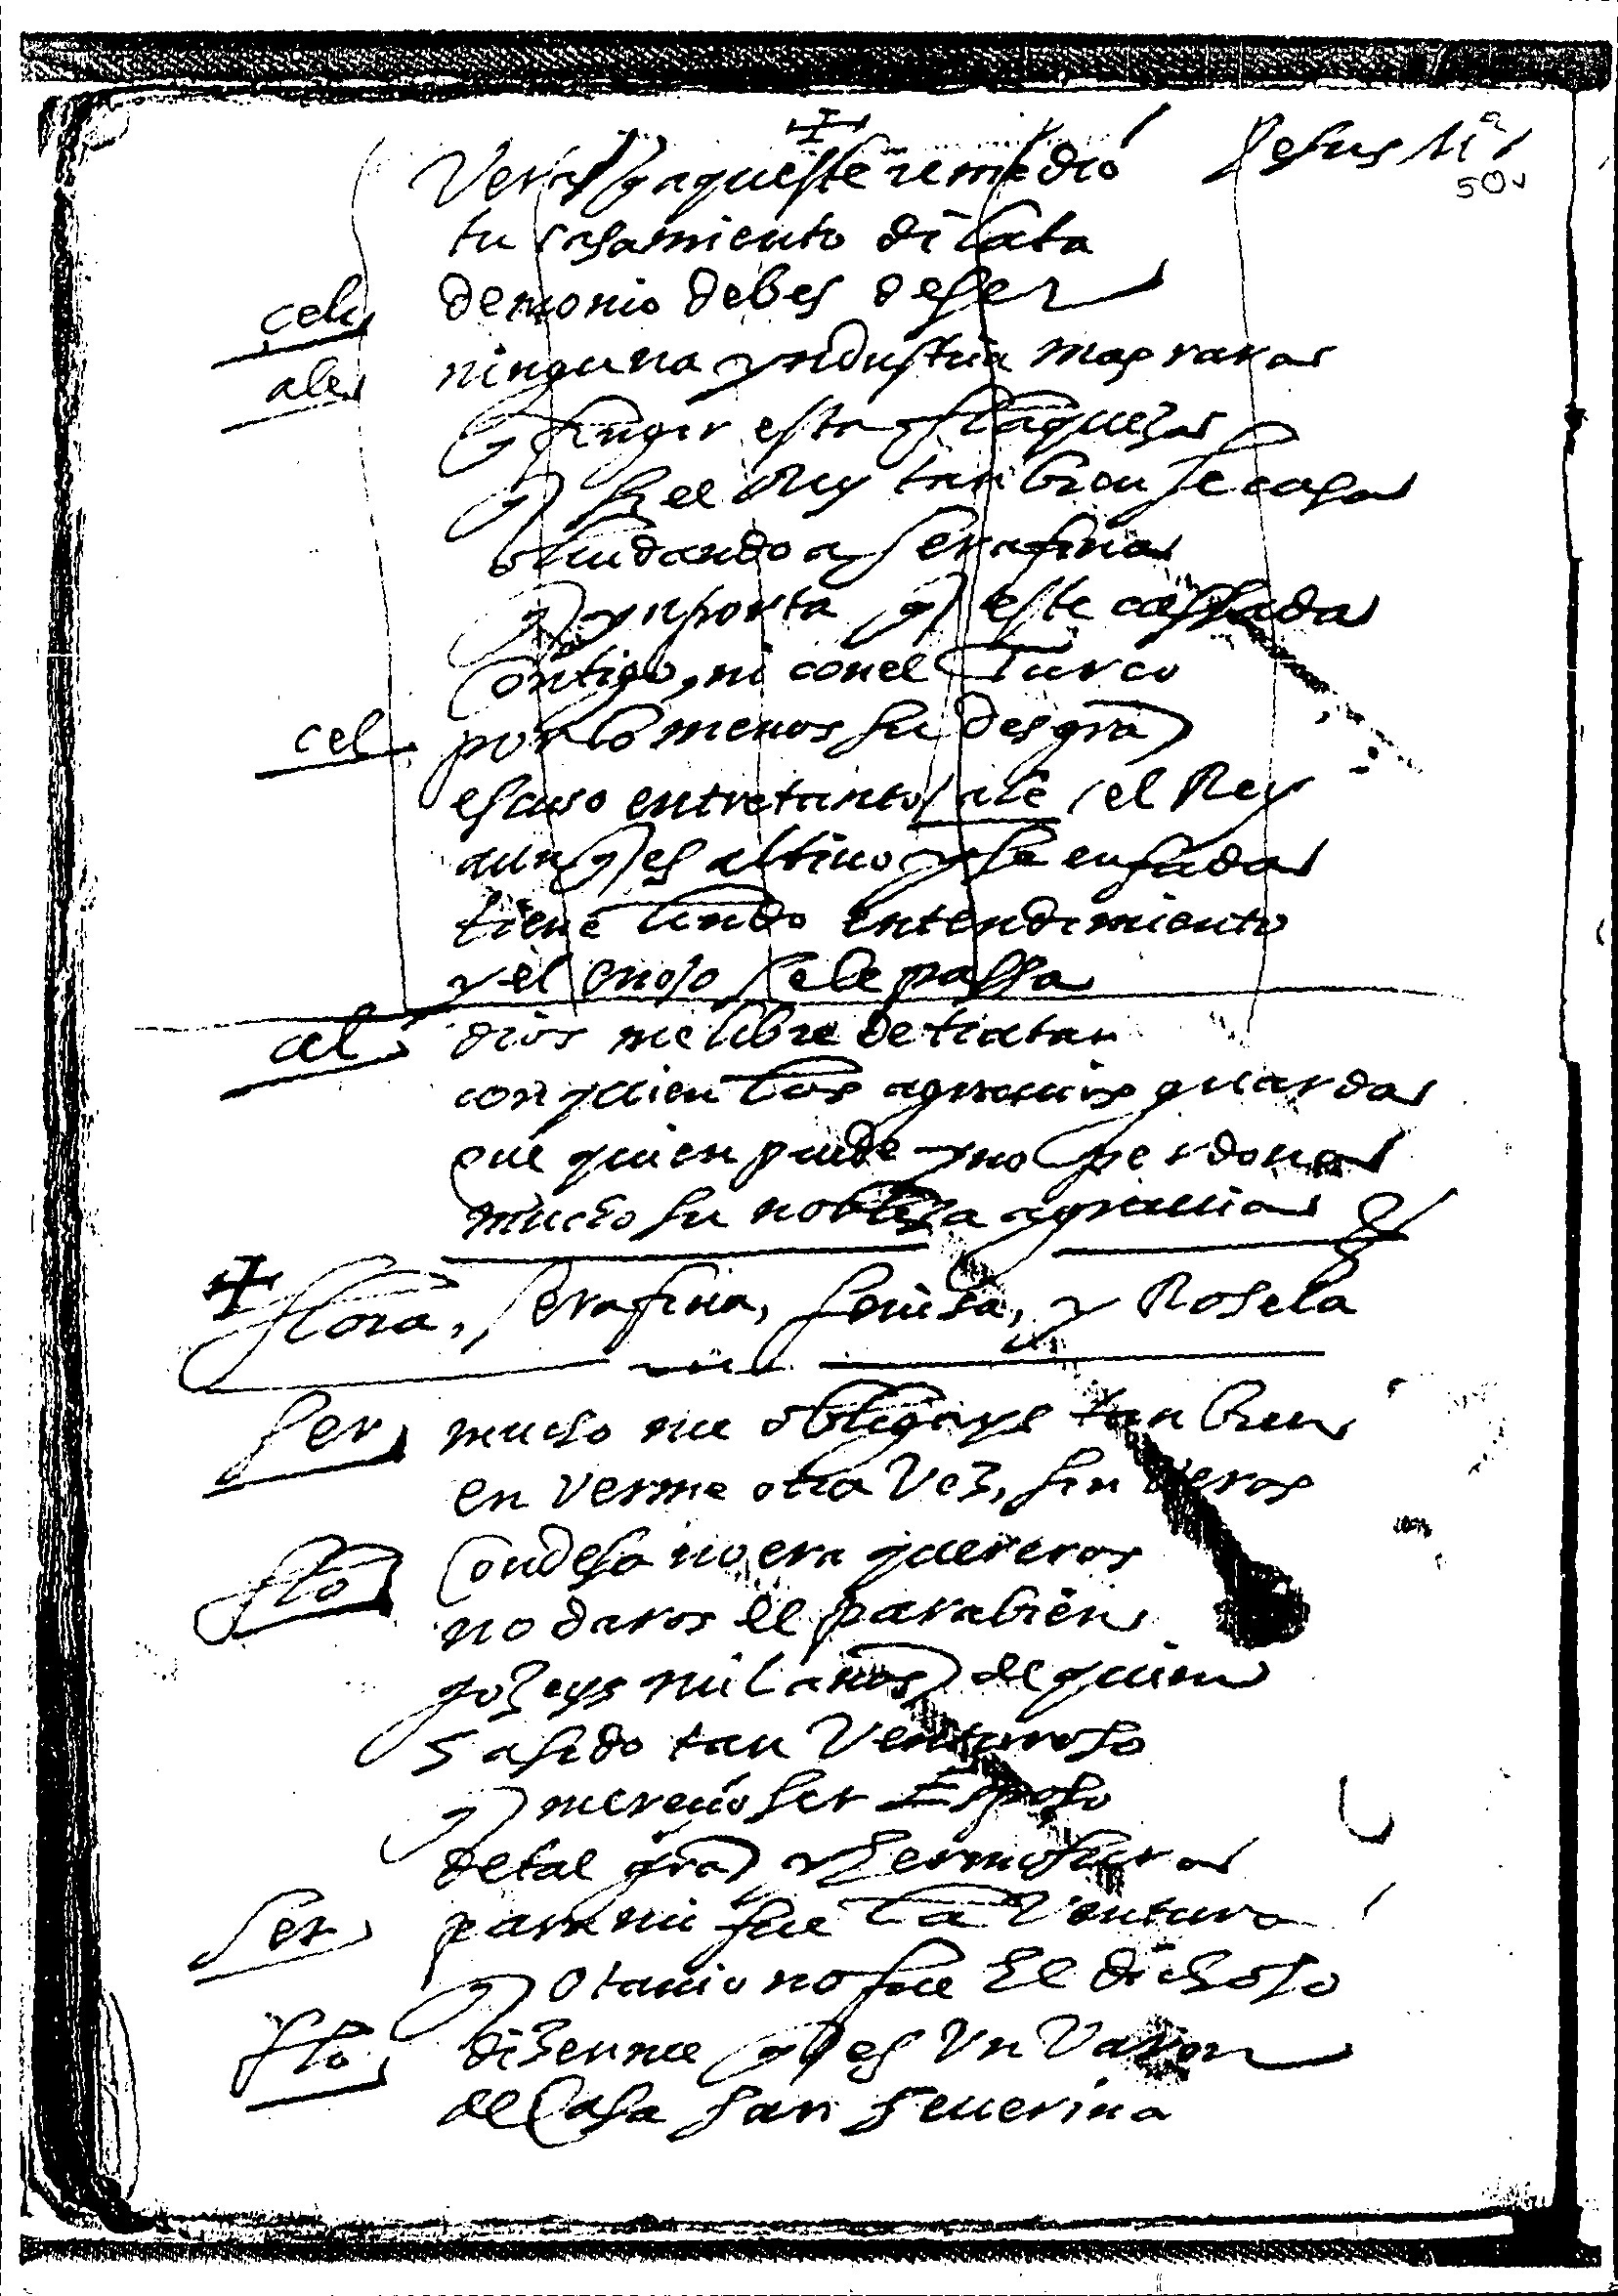 Jesus M.ª
50v
Veras q aqueste remedio
tu casamiento dilata
cel. demonio debes de ser
ale. ninguna yndustria mas rara
q fingir esta flaqueza
q si el Rey tanbien se casa
oluidando a serafina
q ynporta q este cassada
Contigo, ni con el Turco
cel. por lo menos su desgra
escuso entretanto / ale / el Rey
aunq es altiuo y se enfada
tiene lindo entendimiento
y el enojo se le passa
al. dios me libre de tratar
con quien los agrauios guarda
que quien puede y no perdona
mucho su nobleza agrauia
flora, serafina, fenisa, y Rosela
ser. mucho me obligays tanbien
en verme otra vez, sin veros
flo. Condesa no era quereros
no daros el parabien
gozeys mil años de quien
a sido tan Venturoso
q mereçio ser Esposo
de tal gra y hermosura
ser. para mi fue la Ventura
q Otauio no fue El dichoso
flo. dizenme q es Vn Varon
de Casa san seuerina